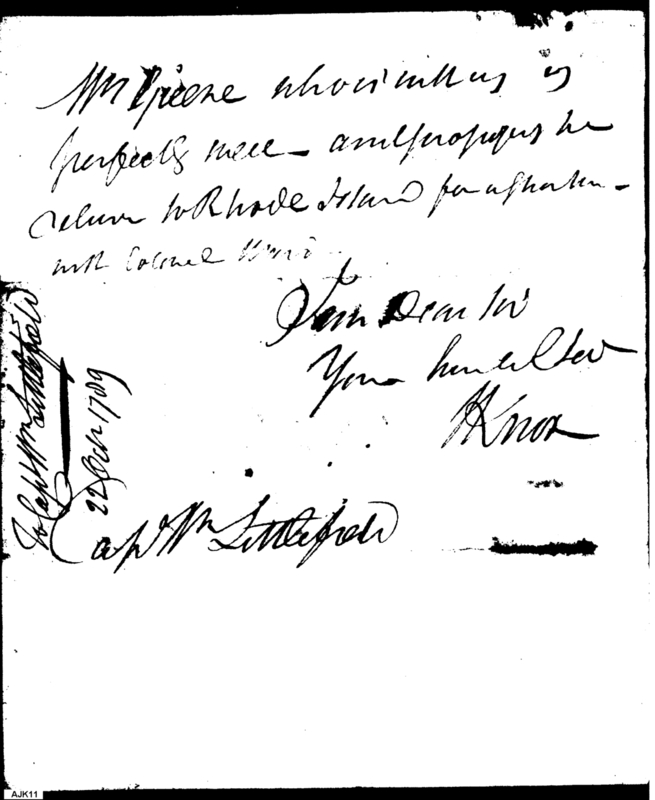 Mrs Greene who is with us is
perfectly well - and proposes to
return to Rhode Island for a short time -
with Colonel
I am Dear sir
Your humble Ser
HKnox
Capt Wm Littlefield
To Capt Wm Littlefield
22 Octr 1789
AJK11